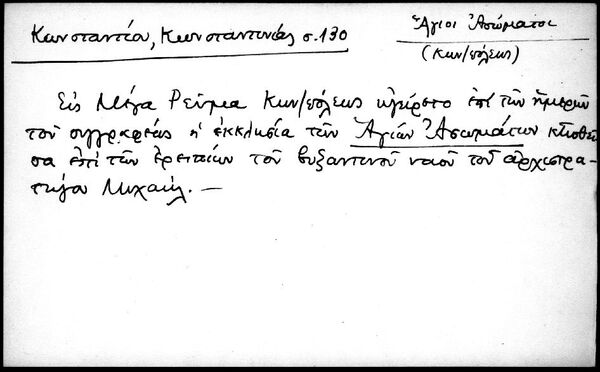 Κωνσταντίου, Κωνσταντινιάς σ. 130
Ἅγιοι Ἀσώματοι
(Κων/πόλεως)
Εἰς Μέγα Ρεῦμα Κων/πόλεως ἠγείρετο ἐπὶ τῶν ἡμερῶν
τοῦ συγγραφέως ἡ ἐκκλησία τῶν Ἁγίων Ἀσωμάτων κτισθεῖ
σα ἐπὶ τῶν ἐρειπίων τοῦ βυζαντινοῦ ναοῦ τοῦ ἀρχιστρα-
τήγου Μιχαήλ. —